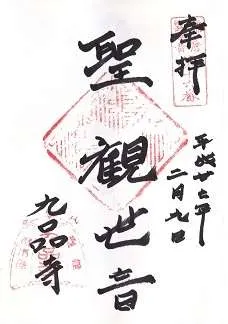 奉拝
平成廿七年
二月九日
聖観世音
九品寺